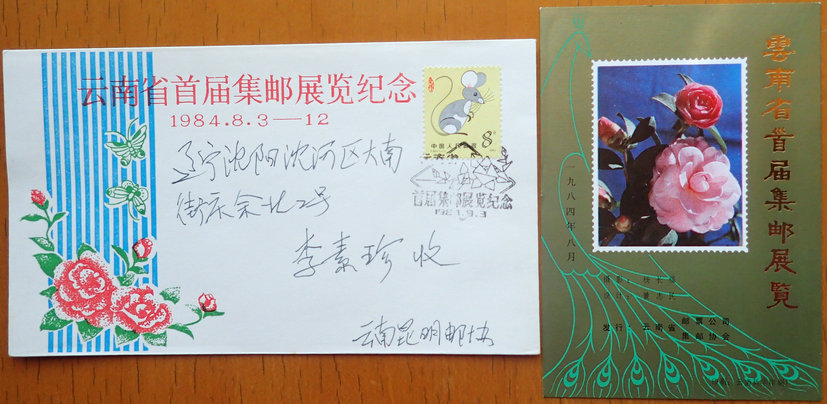 云南省首届集邮展览纪念
1984.8.3—12
8分
中国人民邮政
首届集邮展览纪念
辽宁沈阳沈河区大南
街庆余北2号
李素珍 收
云南昆明邮协
雲南省首届集邮展覧
一九八四年八月
发行：云南省 邮票公司
集邮协会